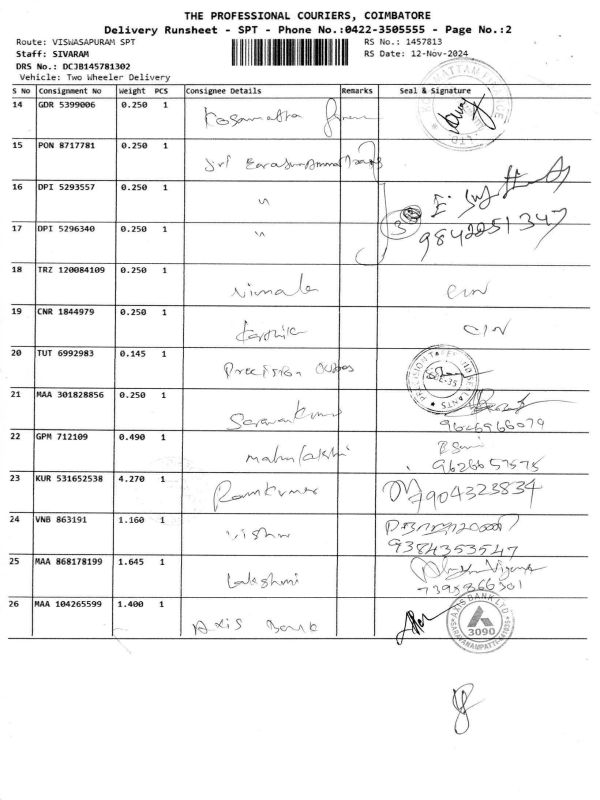 THE PROFESSIONAL COURIERS, COIMBATORE
Delivery Runsheet - SPT - Phone No.:0422-3505555 - Page No.:2
Route: VISWASAPURAM SPT
RS No.: 1457813
Staff: SIVARAM
RS Date: 12-Nov-2024
DRS No.: DCJB145781302
Vehicle: Two Wheeler Delivery
S No Consignment No Weight PCS Consignee Details Remarks Seal & Signature
14 GDR 5399006 0.250 1
15 PON 8717781 0.250 1 Sri
16 DPI 5293557 0.250 1 "
17 DPI 5296340 0.250 1 " 3 9842251347
18 TRZ 120084109 0.250 1 Nirmala
19 CNR 1844979 0.250 1 Karthik
20 TUT 6992983 0.145 1 Precision
21 MAA 301828856 0.250 1 Saravankumar 9626966079
22 GPM 712109 0.490 1 Mahalakshmi 9626657575
23 KUR 531652538 4.270 1 Ramkumar 7904323834
24 VNB 863191 1.160 1 Vishnu 9384353547
25 MAA 868178199 1.645 1 Lakshmi 7395866301
26 MAA 104265599 1.400 1 Axis Bank AXIS BANK LTD 3090